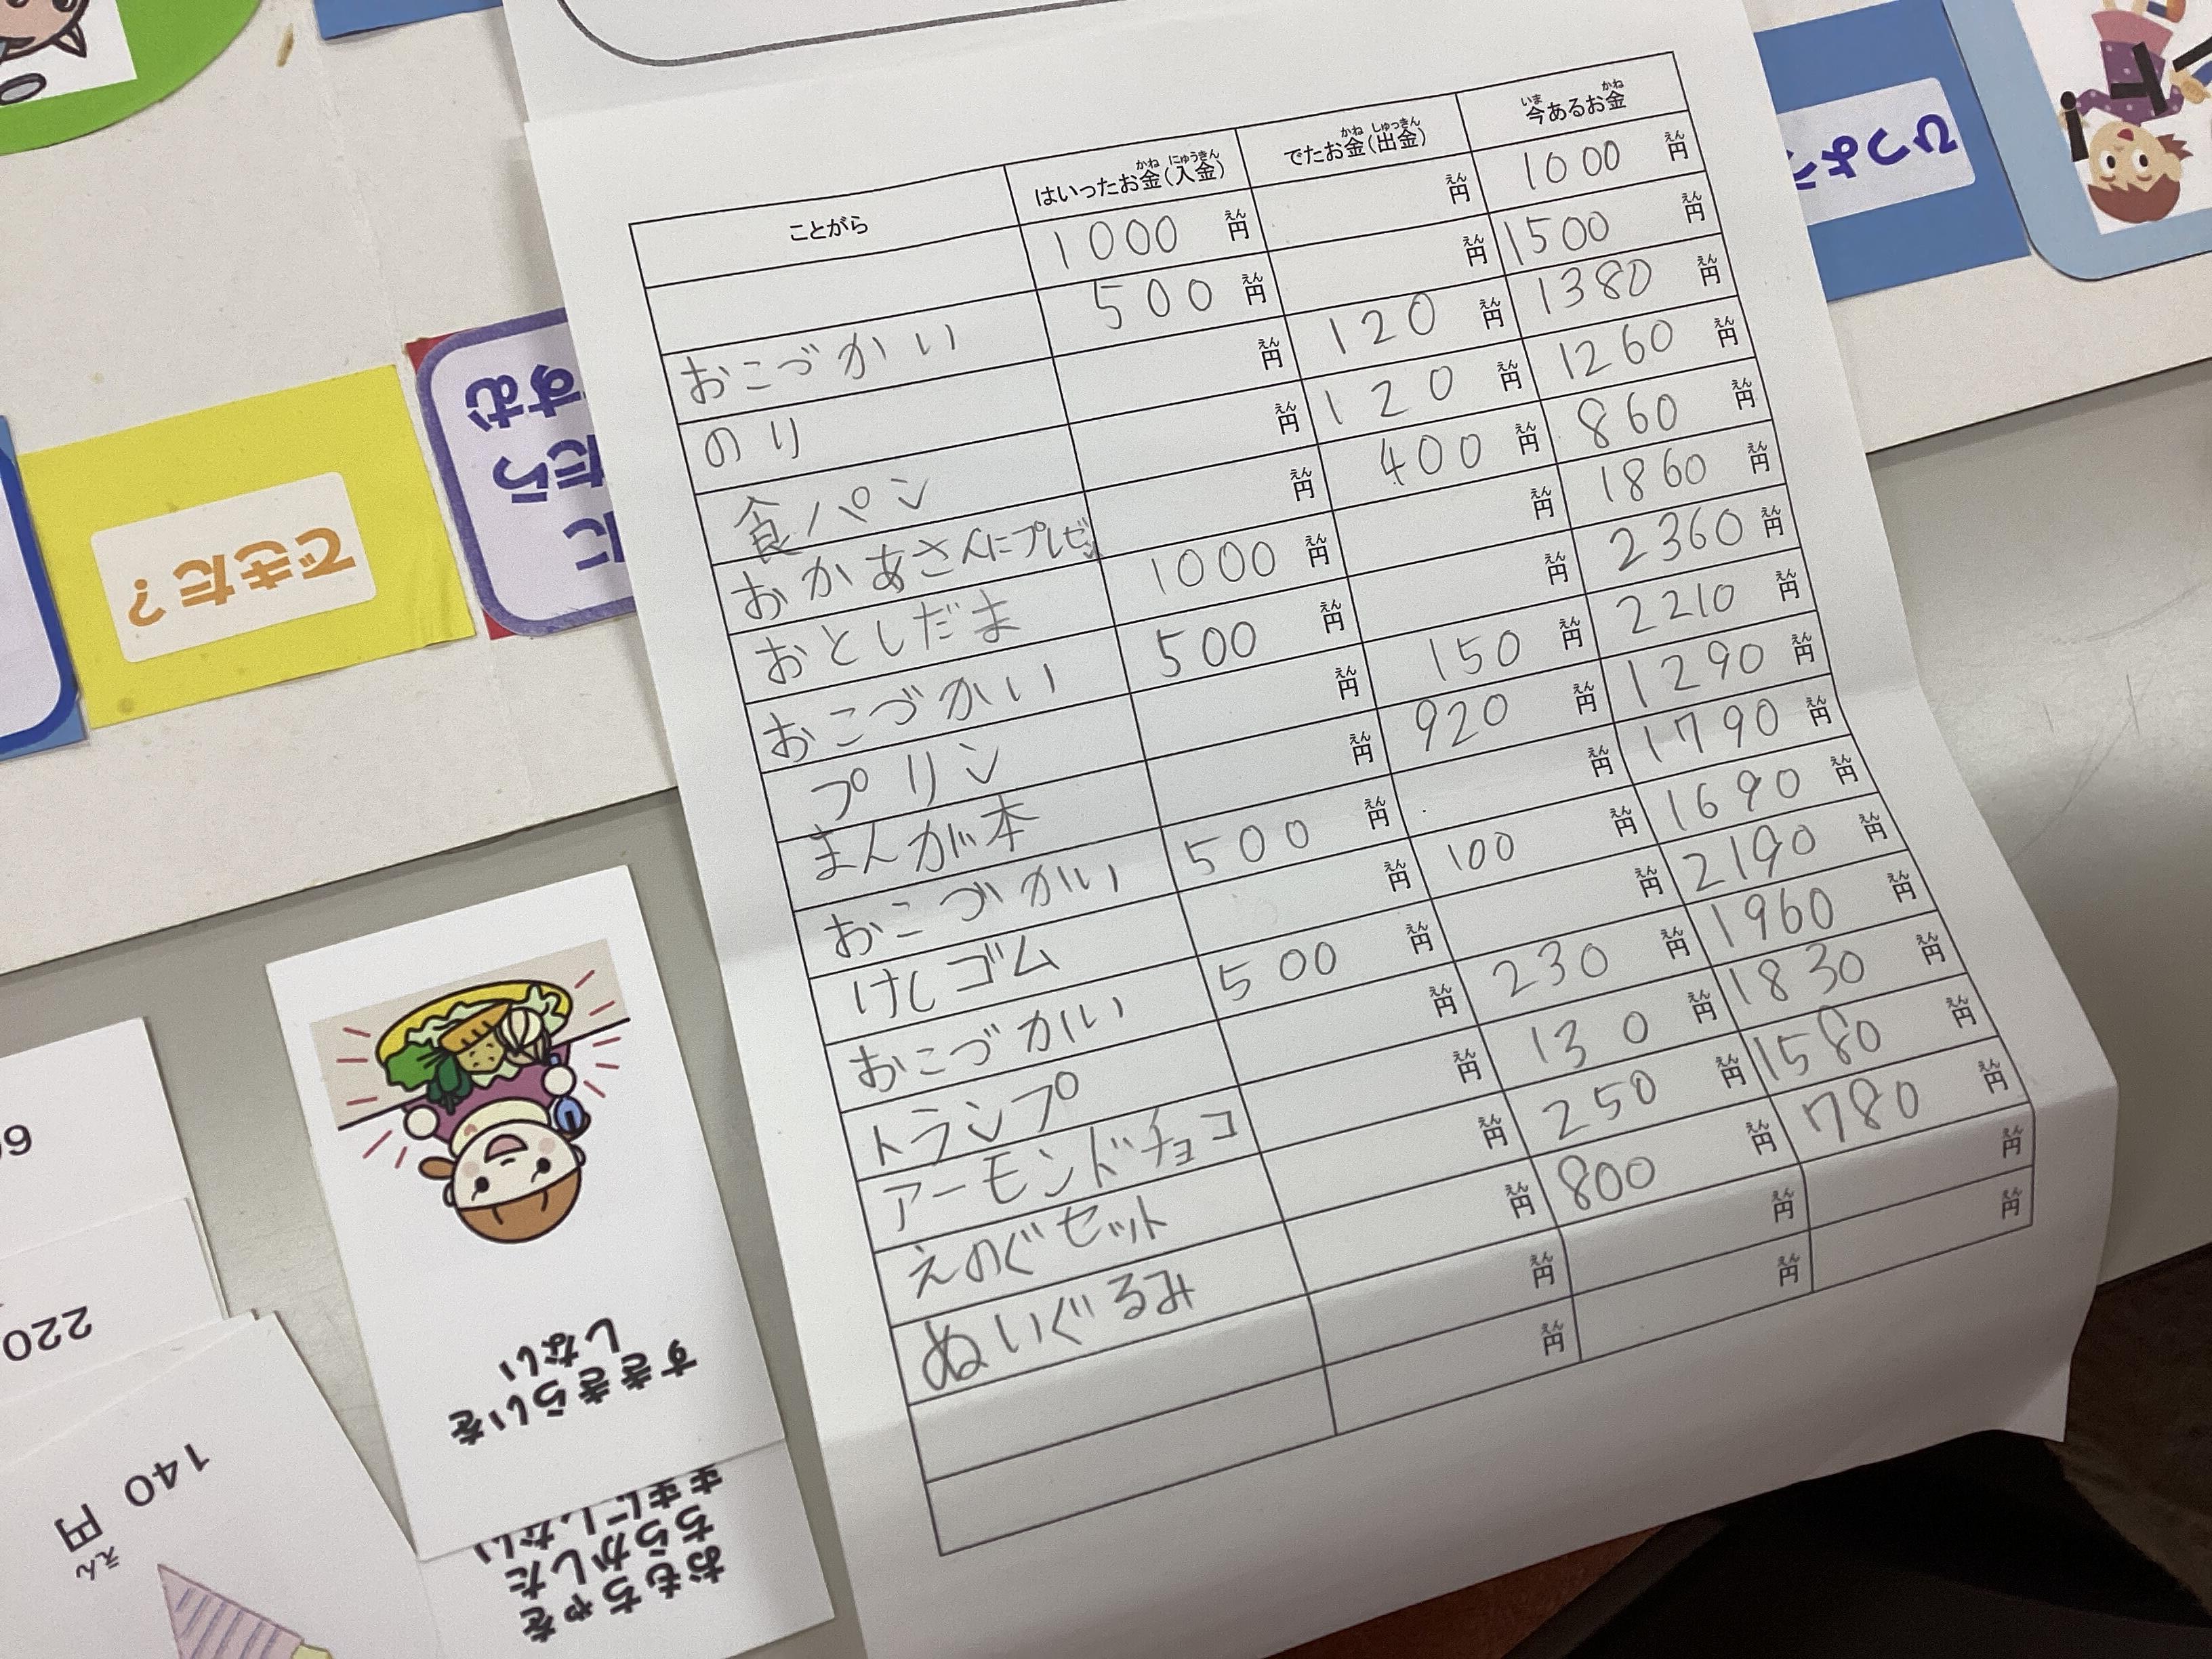 ことがら はいったお金(入金) でたお金(出金) 今あるお金
1000円 円 1000円
おこづかい 500円 円 1500円
のり 円 120円 1380円
食パン 円 120円 1260円
おかあさんにプレゼン 円 400円 860円
おとしだま 1000円 円 1860円
おこづかい 500円 円 2360円
プリン 円 150円 2210円
まんが本 円 920円 1290円
おこづかい 500円 円 1790円
けしゴム 円 100円 1690円
おこづかい 500円 円 2190円
トランプ 円 230円 1960円
アーモンドチョコ 円 130円 1830円
えのぐセット 円 250円 1580円
ぬいぐるみ 円 800円 780円
円 円 円
円 円 円
ひつよう
できた?
に
たら
すむ
すききらいを
しない
おもちゃを
ちらかした
ままにしない
220
140円